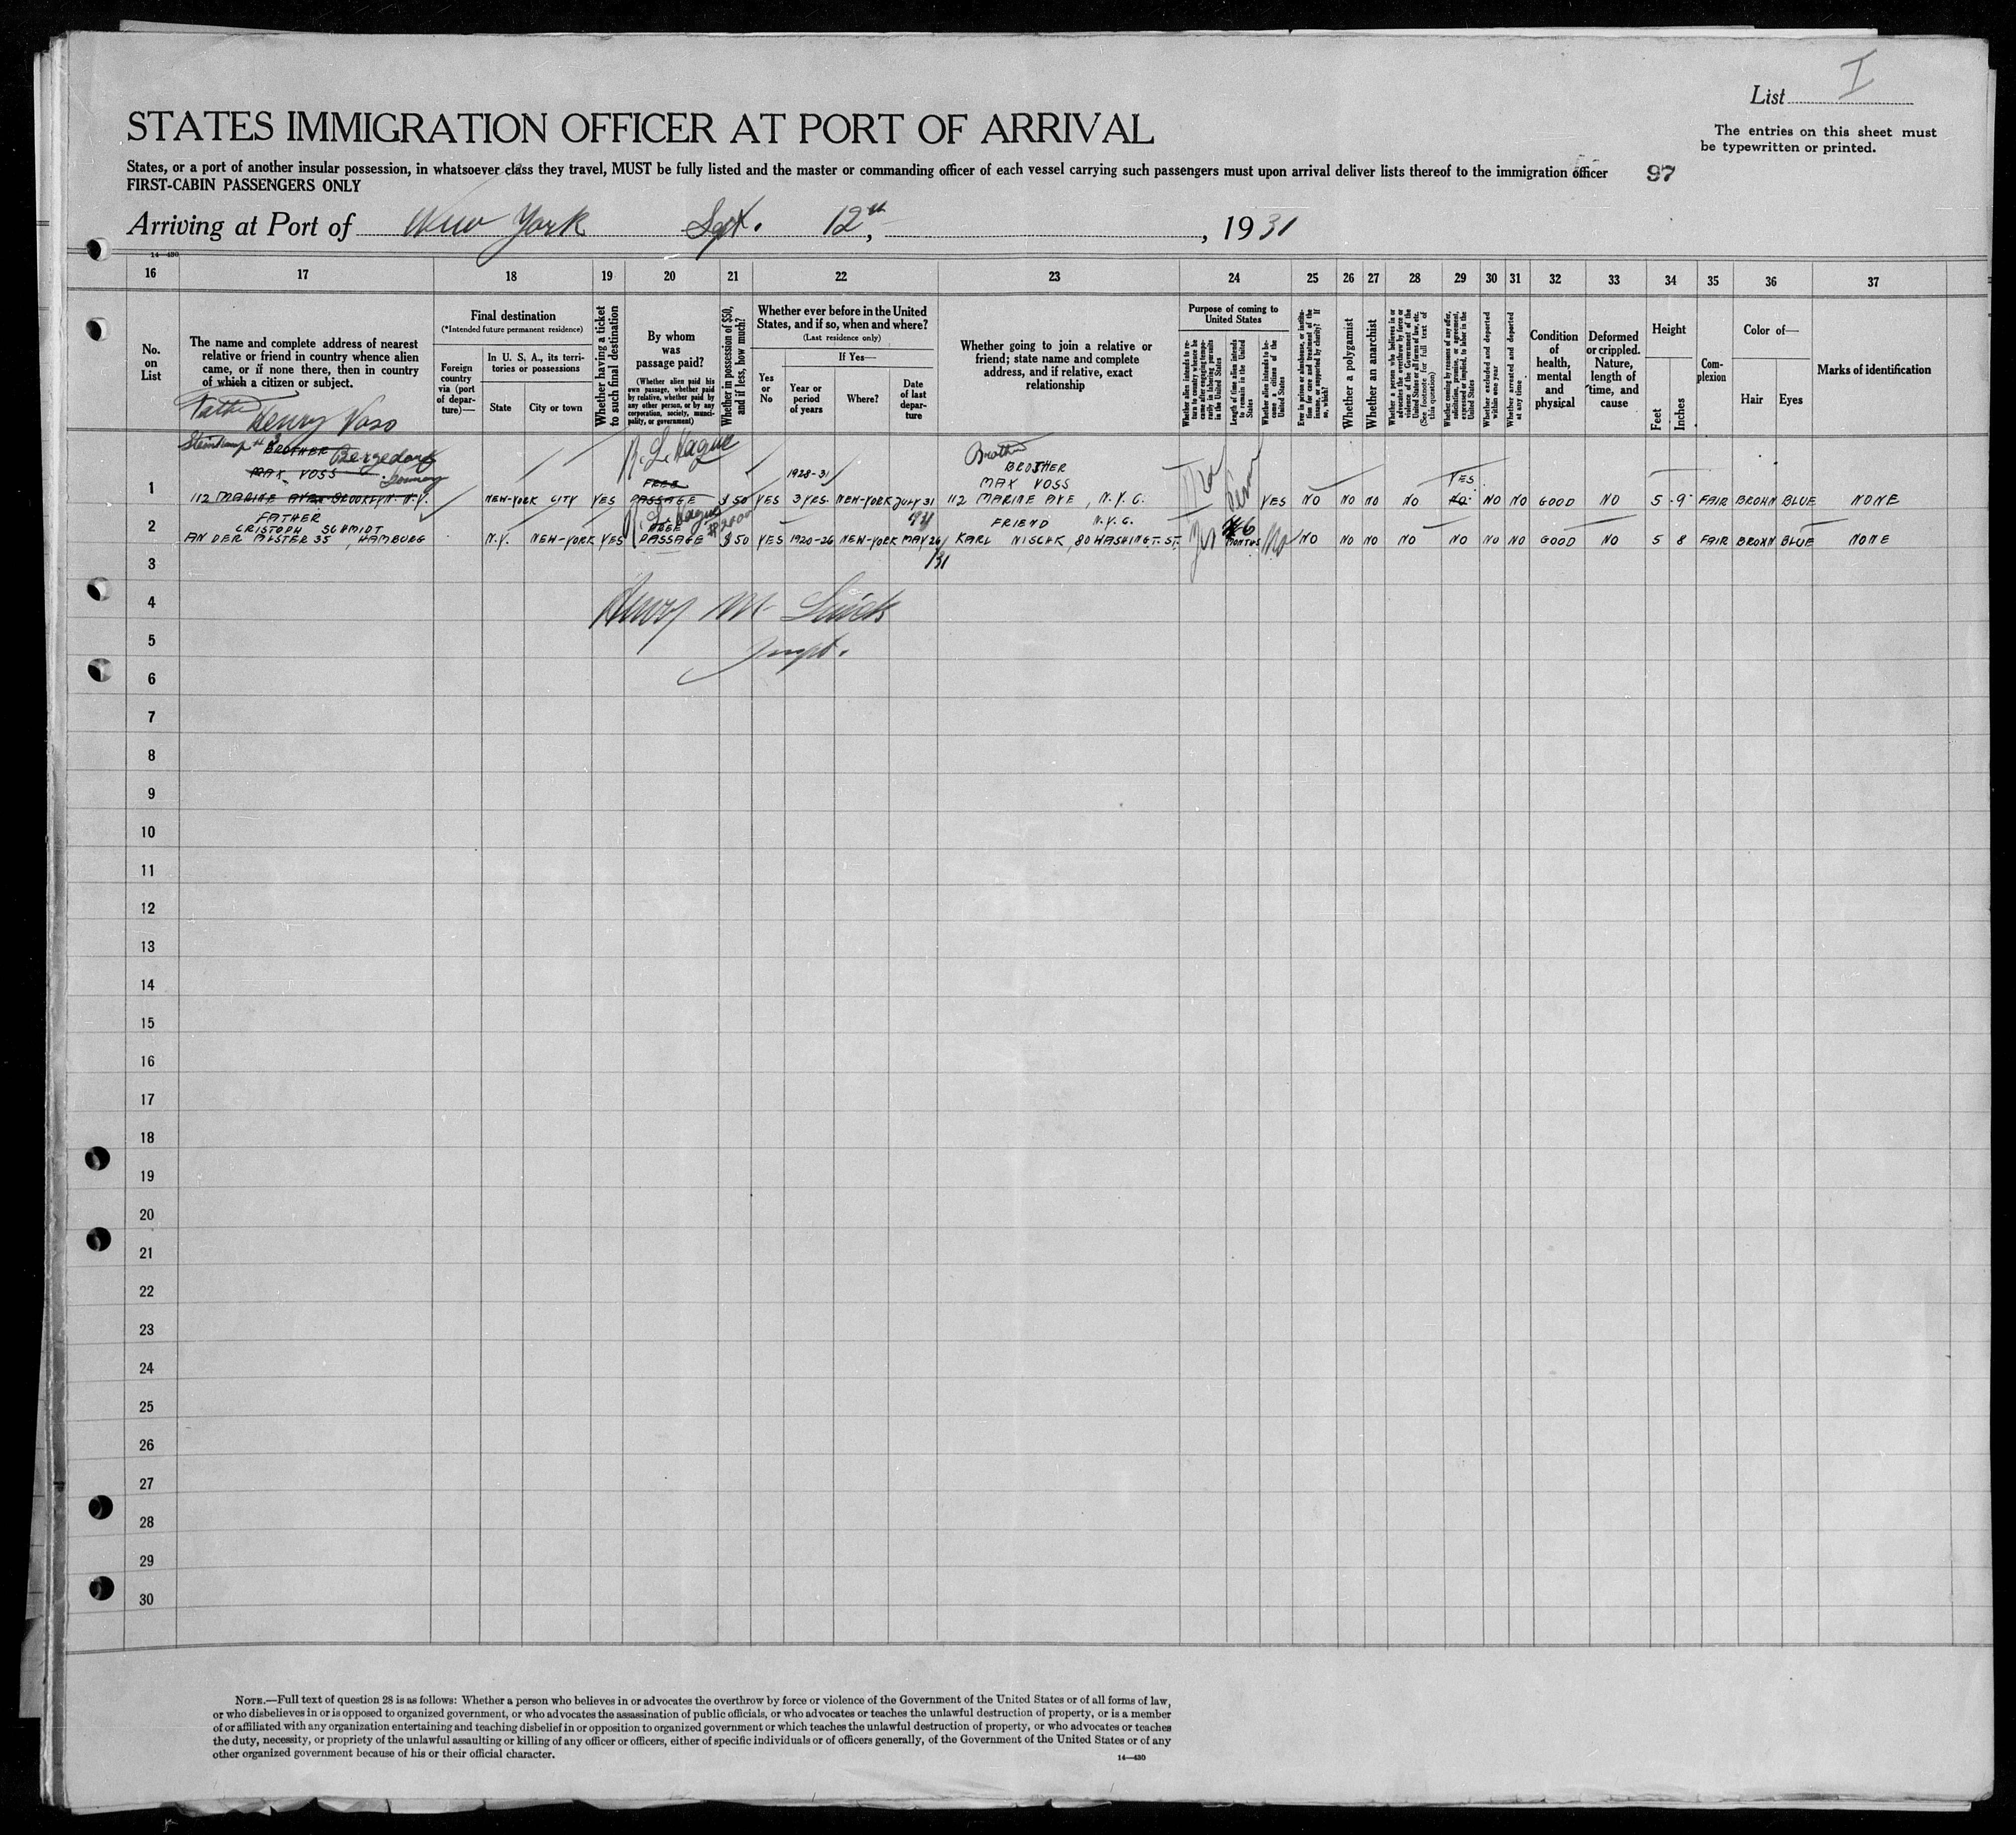 List I
The entries on this sheet must
be typewritten or printed.
STATES IMMIGRATION OFFICER AT PORT OF ARRIVAL
States, or a port of another insular possession, in whatsoever class they travel, MUST be fully listed and the master or commanding officer of each vessel carrying such passengers must upon arrival deliver lists thereof to the immigration officer 97
FIRST-CABIN PASSENGERS ONLY
Arriving at Port of New York Sept. 12th, , 1931
14—430
16 17 18 19 20 21 22 23 24 25 26 27 28 29 30 31 32 33 34 35 36 37
No.
on
List
The name and complete address of nearest
relative or friend in country whence alien
came, or if none there, then in country
of which a citizen or subject.
Final destination
(*Intended future permanent residence)
Foreign
country
via (port
of depar-
ture)—
In U. S. A., its terri-
tories or possessions
State City or town
Whether having a ticket
to such final destination
By whom
was
passage paid?
(Whether alien paid his
own passage, whether paid
by relative, whether paid by
any other person, or by any
corporation, society, munici-
pality, or government)
Whether in possession of $50,
and if less, how much?
Whether ever before in the United
States, and if so, when and where?
(Last residence only)
Yes
or
No
If Yes—
Year or
period
of years
Where?
Date
of last
depar-
ture
Whether going to join a relative or
friend; state name and complete
address, and if relative, exact
relationship
Purpose of coming to
United States
Whether alien intends to re-
turn to country whence he
came after engaging tempo-
rarily in laboring pursuits
in the United States
Length of time alien intends
to remain in the United
States
Whether alien intends to be-
come a citizen of the
United States
Ever in prison or almshouse, or institu-
tion for care and treatment of the
insane, or supported by charity? If
so, which?
Whether a polygamist
Whether an anarchist
Whether a person who believes in or
advocates the overthrow by force or
violence of the Government of the
United States or all forms of law, etc.
(See footnote for full text of
this question)
Whether coming by reason of any offer,
solicitation, promise, or agreement,
expressed or implied, to labor in the
United States
Whether excluded and deported
within one year
Whether arrested and deported
at any time
Condition
of
health,
mental
and
physical
Deformed
or crippled.
Nature,
length of
time, and
cause
Height
Feet Inches
Com-
plexion
Color of—
Hair Eyes
Marks of identification
Father Henry Voss
BROTHER Bergedorf
MAX VOSS
1 112 MARINE AVE BROOKLYN. N.Y. NEW-YORK CITY YES FREE PASSAGE $50 YES 1928-31 3 YES. NEW-YORK JULY 31
Brother
BROTHER
MAX VOSS
112 MARINE AVE, N.Y.C. No YES NO NO NO NO YES NO NO NO GOOD NO 5 9 FAIR BROWN BLUE NONE
FATHER
CRISTOPH SCHMIDT
2 AN DER ALSTER 35, HAMBURG N.Y. NEW-YORK YES FREE PASSAGE $50 YES 1920-26 NEW-YORK MAY 26
FRIEND N.Y.C.
KARL NISCHK, 80 WASHINGT. ST. Yes 6 MONTHS No NO NO NO NO NO NO NO GOOD NO 5 8 FAIR BROWN BLUE NONE
3
31
4
Henry M
5
Inspt.
6
7
8
9
10
11
12
13
14
15
16
17
18
19
20
21
22
23
24
25
26
27
28
29
30
NOTE.—Full text of question 28 is as follows: Whether a person who believes in or advocates the overthrow by force or violence of the Government of the United States or of all forms of law,
or who disbelieves in or is opposed to organized government, or who advocates the assassination of public officials, or who advocates or teaches the unlawful destruction of property, or is a member
of or affiliated with any organization entertaining and teaching disbelief in or opposition to organized government or which teaches the unlawful destruction of property, or who advocates or teaches
the duty, necessity, or propriety of the unlawful assaulting or killing of any officer or officers, either of specific individuals or of officers generally, of the Government of the United States or of any
other organized government because of his or their official character.
14—430